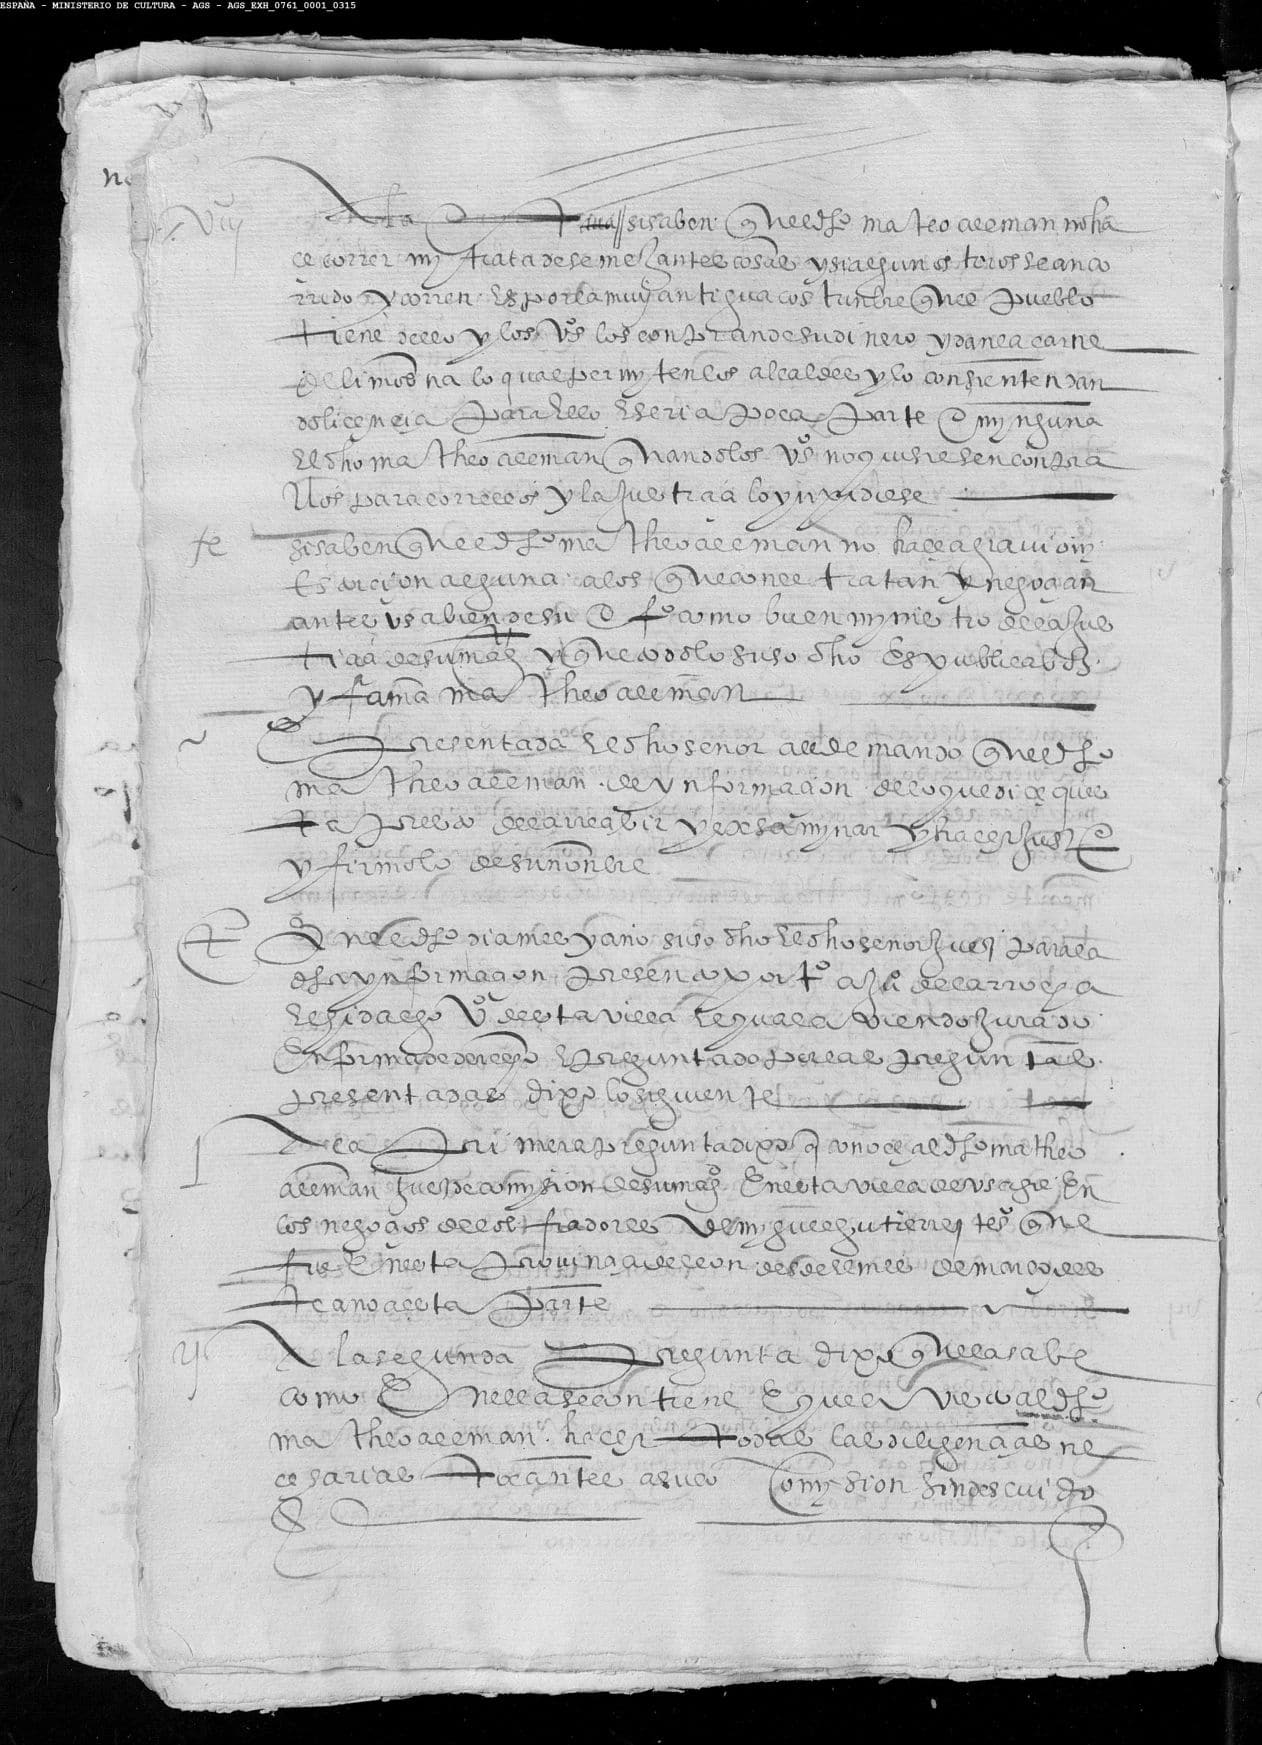 ESPAÑA - MINISTERIO DE CULTURA - AGS - AGS_EXH_0761_0001_0315
viij
si saben que el dho mateo aleman no ha
ce correr ny trata de semejantes cosas y si algunos toros se an co
rrido y corren es por la muy antigua costunbre quel pueblo
tiene dello y los vos los conpran de su dinero y dan la carne
de limosna lo qual permyten los alcaldes y lo consienten dan
do licencia para ello e seria poca parte o nynguna
el dho matheo aleman quando los vos no quisiesen conpra
llos para correllos y la justicia lo ynpidiese
si saben que el dho matheo aleman no hace agravio ny
estorcion alguna a los que con el tratan y negocian
antes usa bien de su ofo como buen mynistro de la jus
ticia de su magd y que todo lo suso dho es publica boz
y fama matheo aleman
Presentada el dho señor allde mando que el dho
matheo aleman de ynformacion de lo que dice ques
ta presto de la recibir y exsamynar y hacer justa
y firmolo de su nonbre
E
que el dho dia mes y año suso dho el dho señor juez para la
dha ynformacion presento por to a ju de la rocha
el hidalgo vo desta villa el qual aviendo jurado
en forma de derecho e preguntado por las preguntas
presentadas dixo lo siguiente
I
A la primera pregunta dixo q conoce al dho matheo
aleman juez de comysion de su magd en esta villa de usagre en
los negocios de los fiadores de myguel gutierrez teso que
fue en esta provincia de leon desde el mes de março des
te año a esta parte
ij
A la segunda pregunta dixo que la sabe
como en ella se contiene e que a visto al dho
matheo aleman hacer todas las diligencias ne
cesarias tocantes a su comysion sin descuido